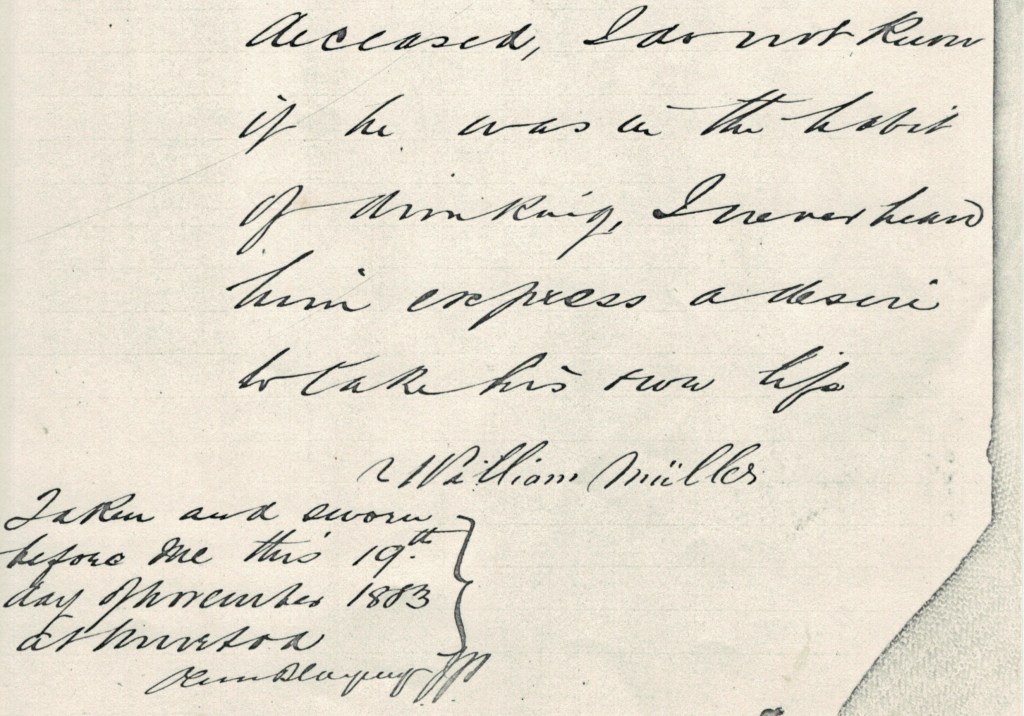 deceased, I do not know
if he was in the habit
of drinking, I never heard
him express a desire
to take his own life
William Müller
Taken and sworn
before me this 19th
day of November 1883
at
JP